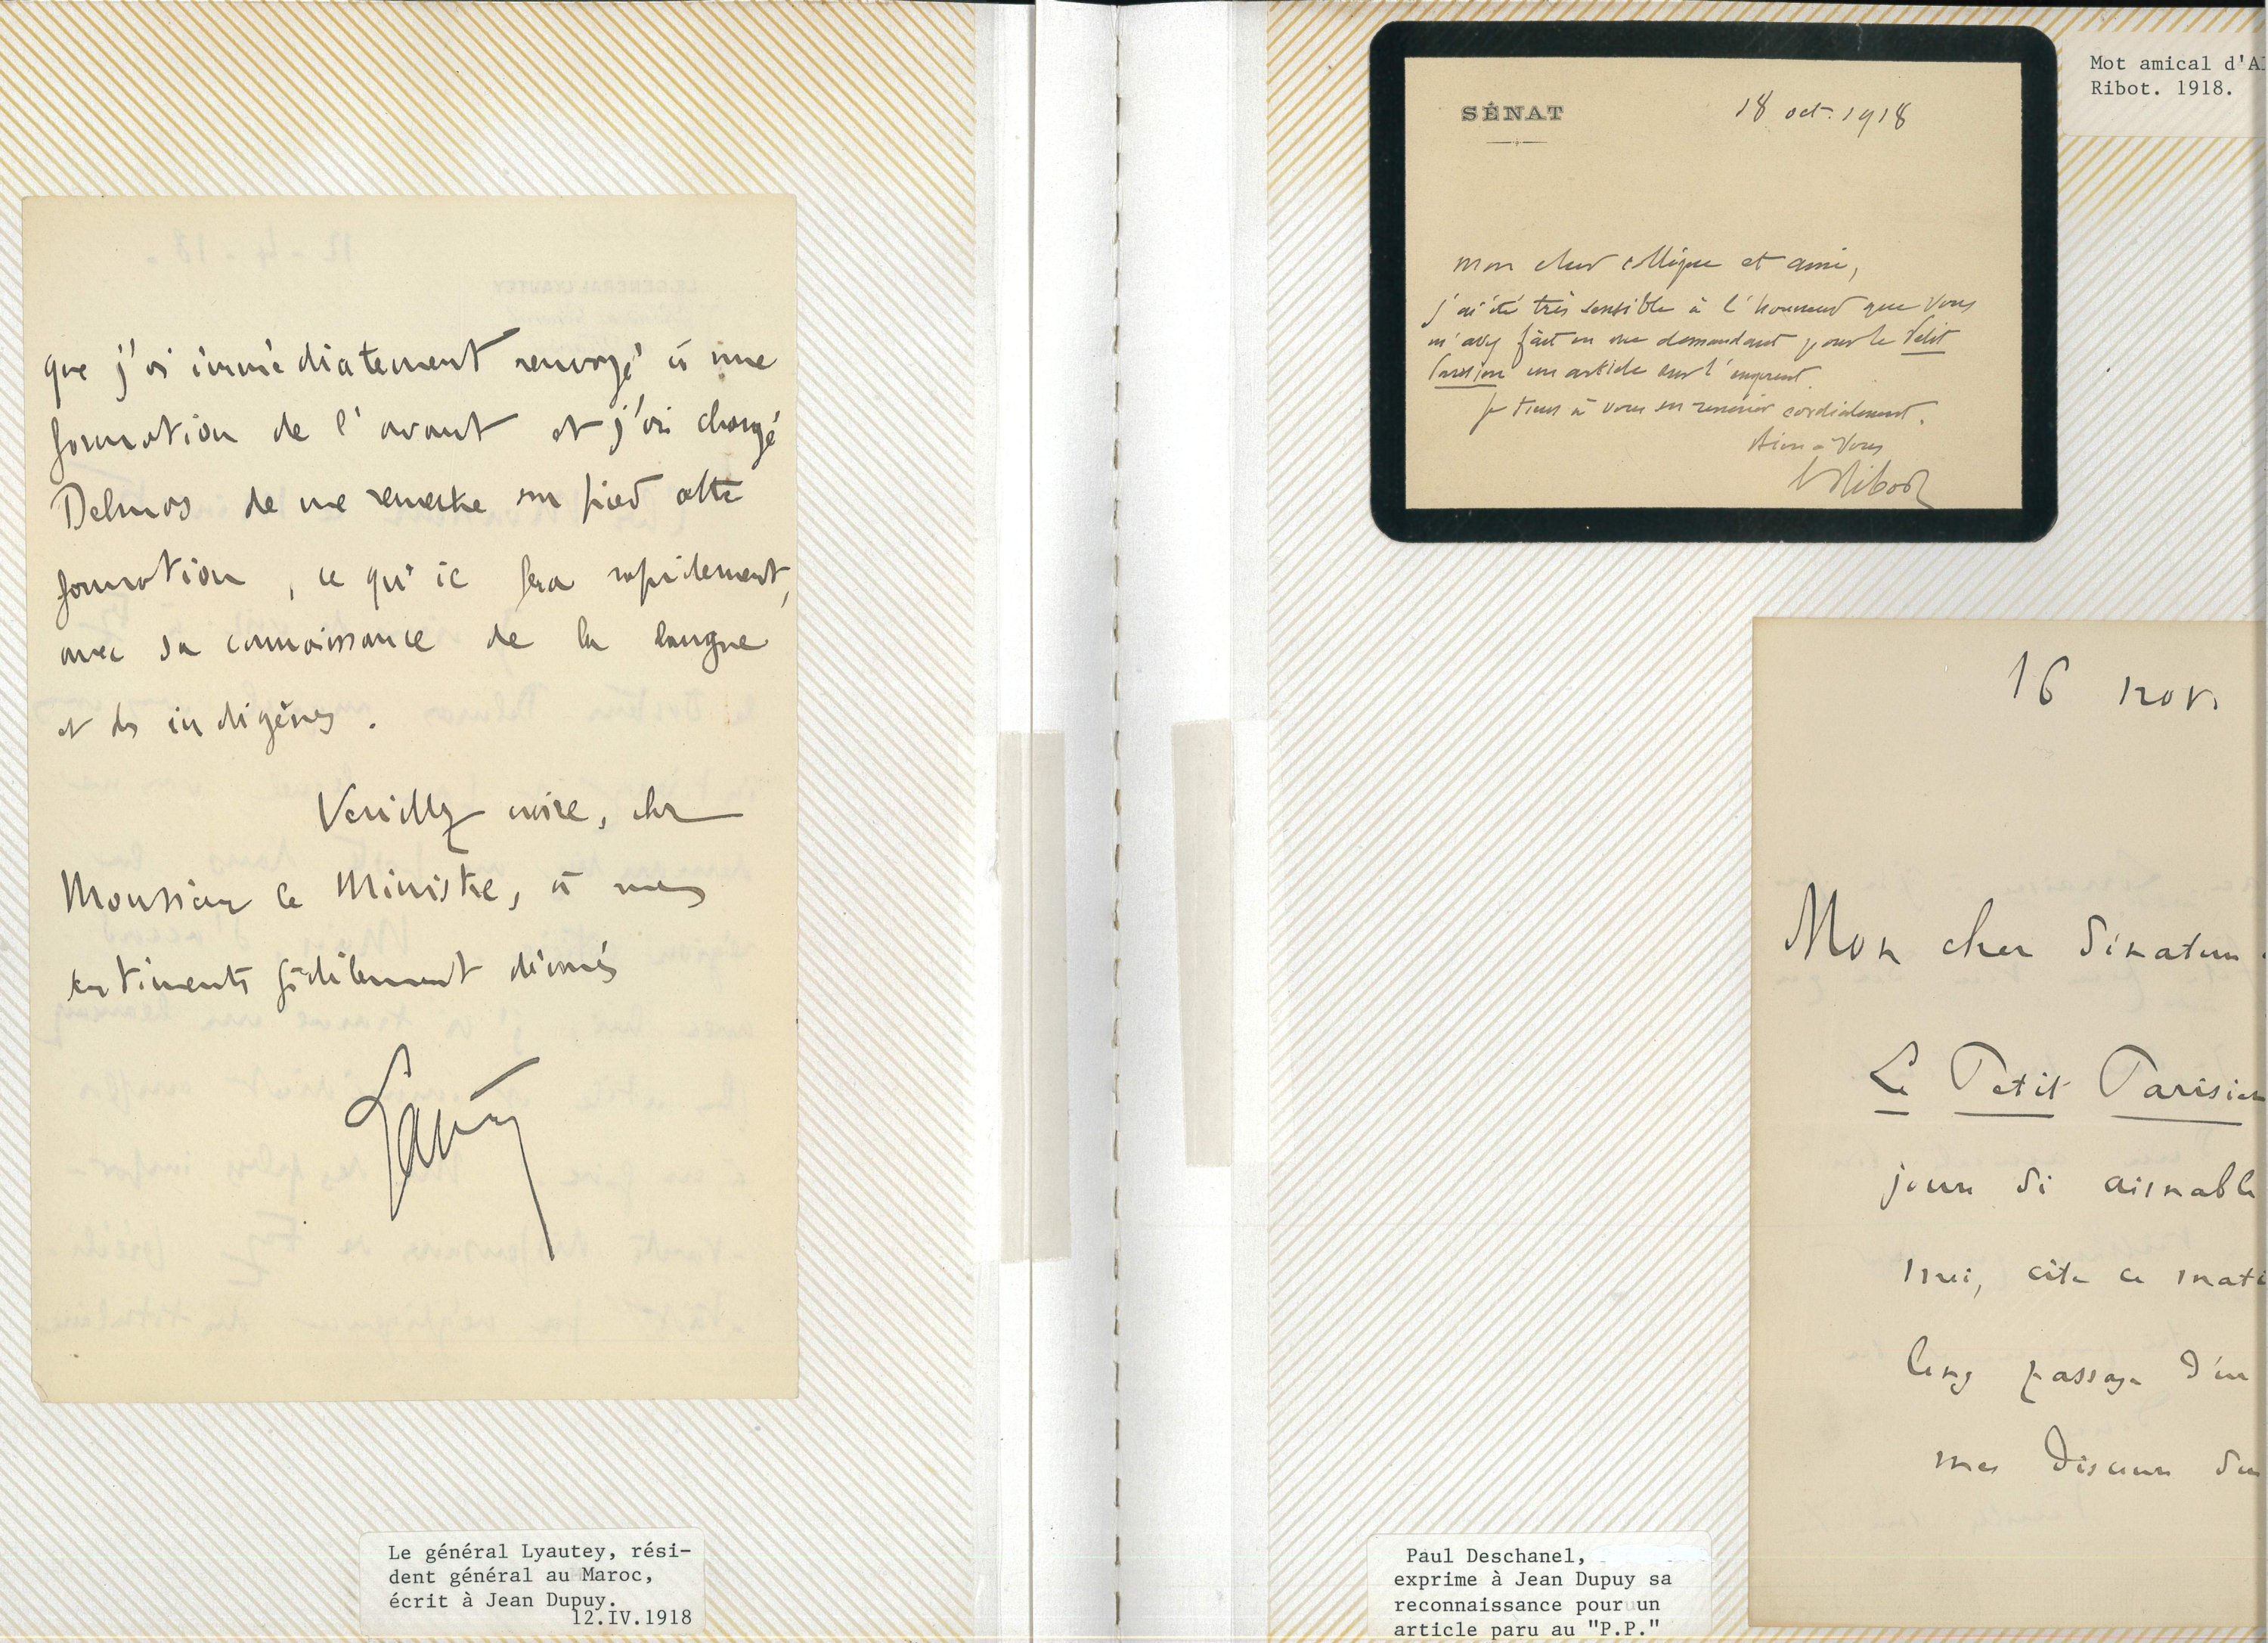 que j'ai immédiatement renvoyé à une
formation de l'avant et j'ai chargé
Delmas de me remettre sur pied cette
formation, ce qu'il fera rapidement,
avec sa connaissance de la langue
et des indigènes.
Veuillez croire, cher
Monsieur le Ministre, à mes
sentiments fidèlement dévoués
Lyautey
Le général Lyautey, rési-
dent général au Maroc,
écrit à Jean Dupuy.
12.IV.1918
SÉNAT
18 oct. 1918
Mon cher collègue et ami,
j'ai été très sensible à l'honneur que vous
m'avez fait en me demandant pour le Petit
Parisien un article sur l'emprunt.
Je tiens à vous en remercier cordialement.
Bien à vous
A Ribot
Mot amical d'A
Ribot. 1918.
16 nov.
Mon cher Sénateur
Le Petit Parisien
jours si aimable
moi, cite ce mati
long passage d'un
mes discours sur
Paul Deschanel,
exprime à Jean Dupuy sa
reconnaissance pour un
article paru au "P.P."